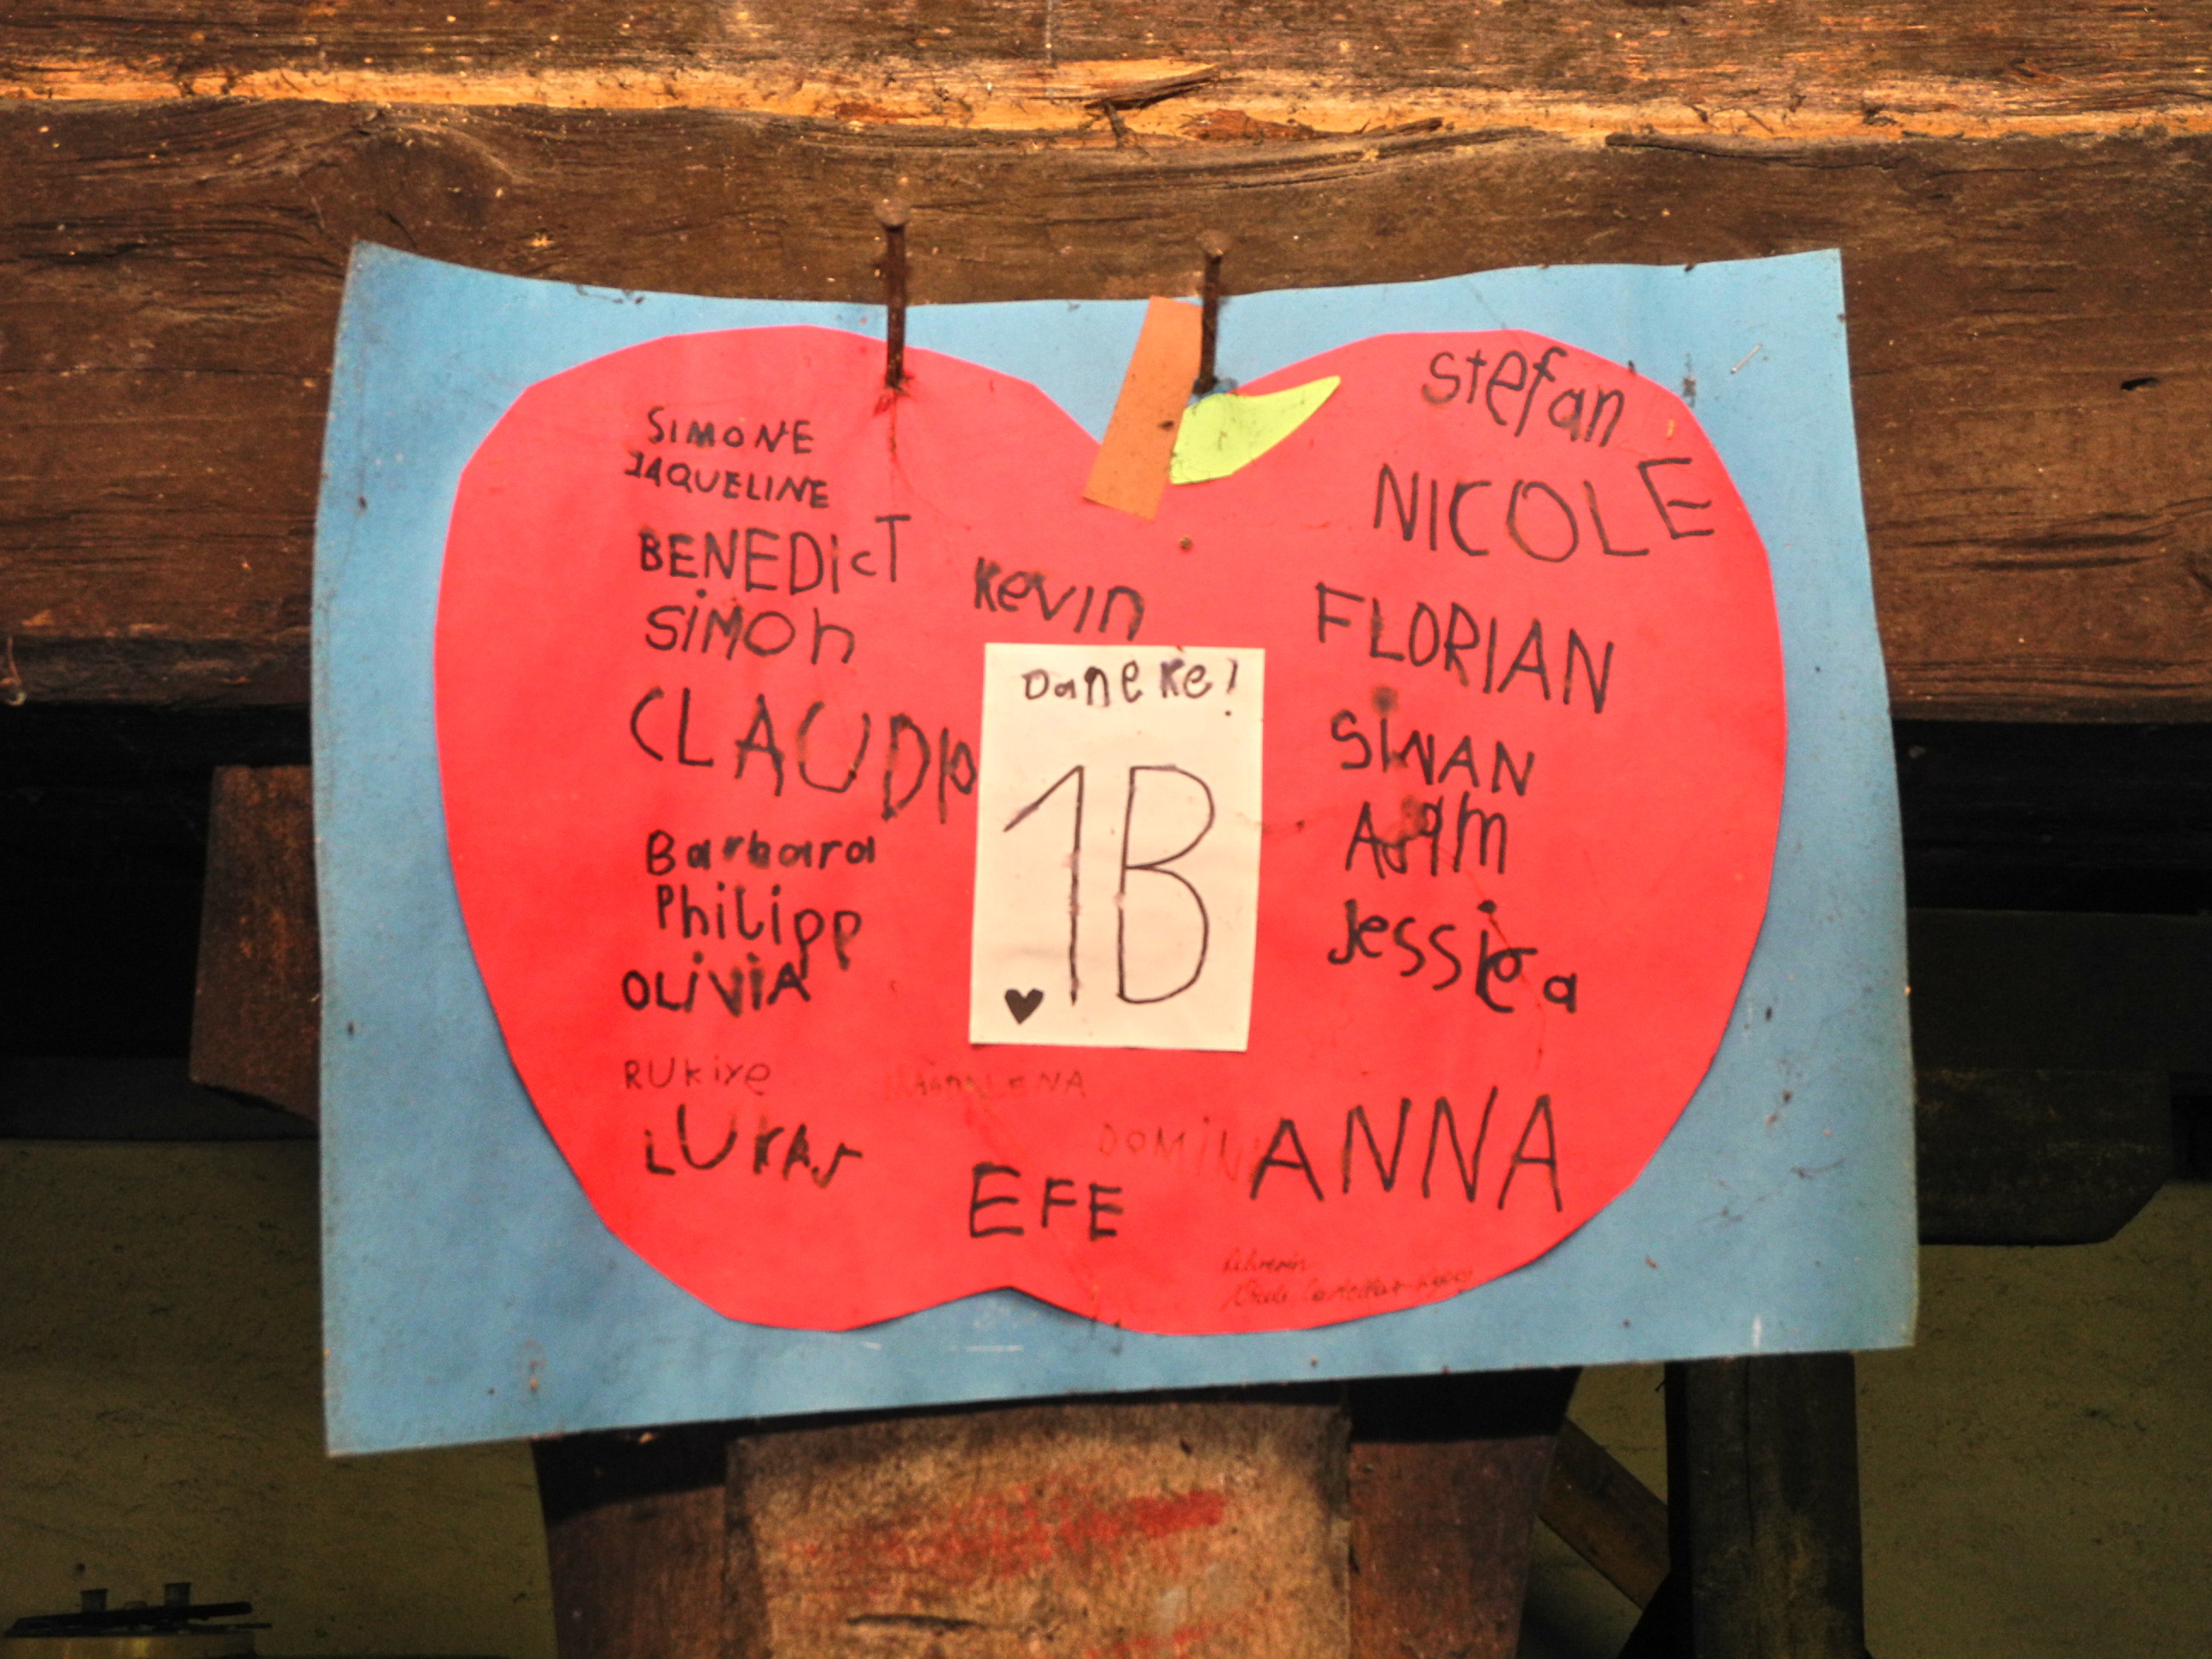 SIMONE
JAQUELINE
BENEDIcT
SiMOn
CLAUDIO
Barbara
Philipp
OLiViA
RUkiye
LUKAs
Kevin
Daneke!
1B
MAGDALENA
EFE
DOMiNI
stefan
NICOLE
FLORIAN
SiNAN
Jessica
ANNA